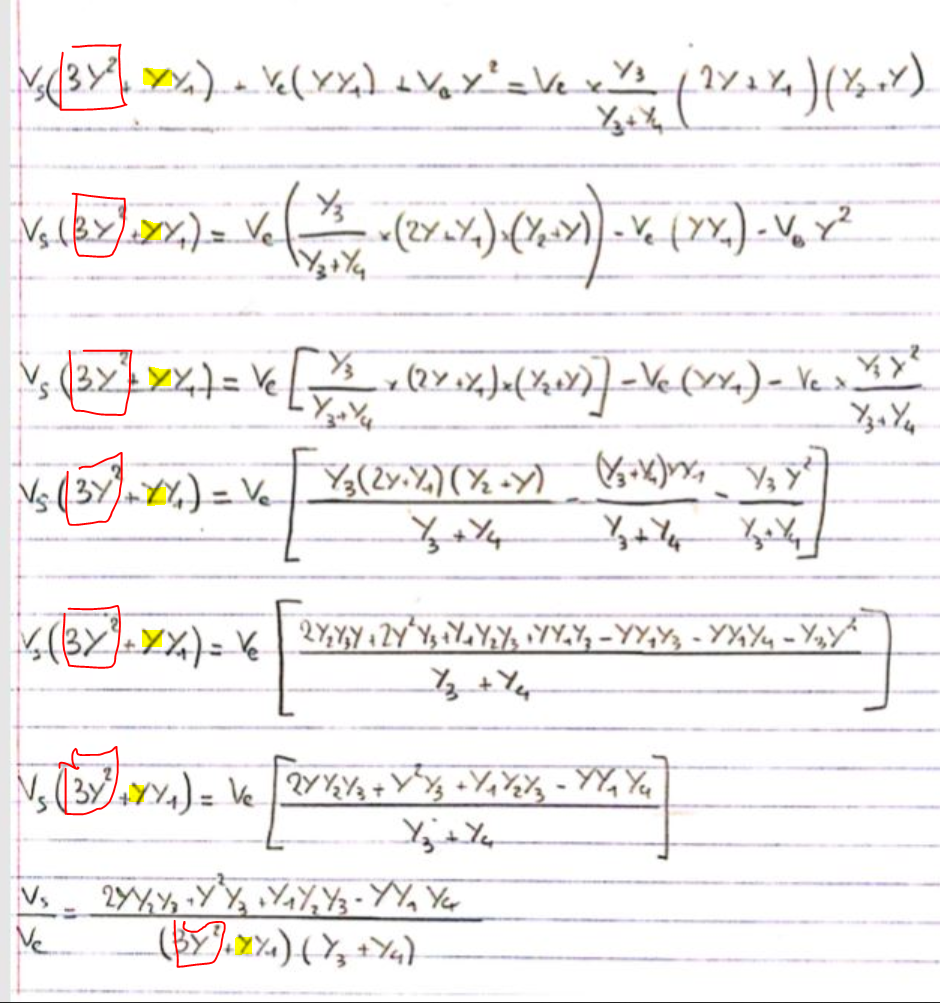 Vs(3Y² + YY₁) + Ve(YY₁) + VB Y² = Ve × Y₃/(Y₃+Y₄) (2Y+Y₁)(Y₂+Y)
Vs(3Y²+YY₁) = Ve(Y₃/(Y₃+Y₄) × (2Y+Y₁)×(Y₂+Y)) - Ve(YY₁) - VB Y²
Vs(3Y²+YY₁) = Ve[Y₃/(Y₃+Y₄) × (2Y+Y₁)×(Y₂+Y)] - Ve(YY₁) - Ve × Y₃Y²/(Y₃+Y₄)
Vs(3Y²+YY₁) = Ve[Y₃(2Y+Y₁)(Y₂+Y)/(Y₃+Y₄) - (Y₃+Y₄)YY₁/(Y₃+Y₄) - Y₃Y²/(Y₃+Y₄)]
Vs(3Y²+YY₁) = Ve[(2Y₂Y₃Y+2Y²Y₃+Y₁Y₂Y₃+YY₁Y₃-YY₁Y₃-YY₁Y₄-Y₃Y²)/(Y₃+Y₄)]
Vs(3Y²+YY₁) = Ve[(2YY₂Y₃+Y²Y₃+Y₁Y₂Y₃-YY₁Y₄)/(Y₃+Y₄)]
Vs/Ve = (2YY₂Y₃+Y²Y₃+Y₁Y₂Y₃-YY₁Y₄)/((3Y²+YY₁)(Y₃+Y₄))